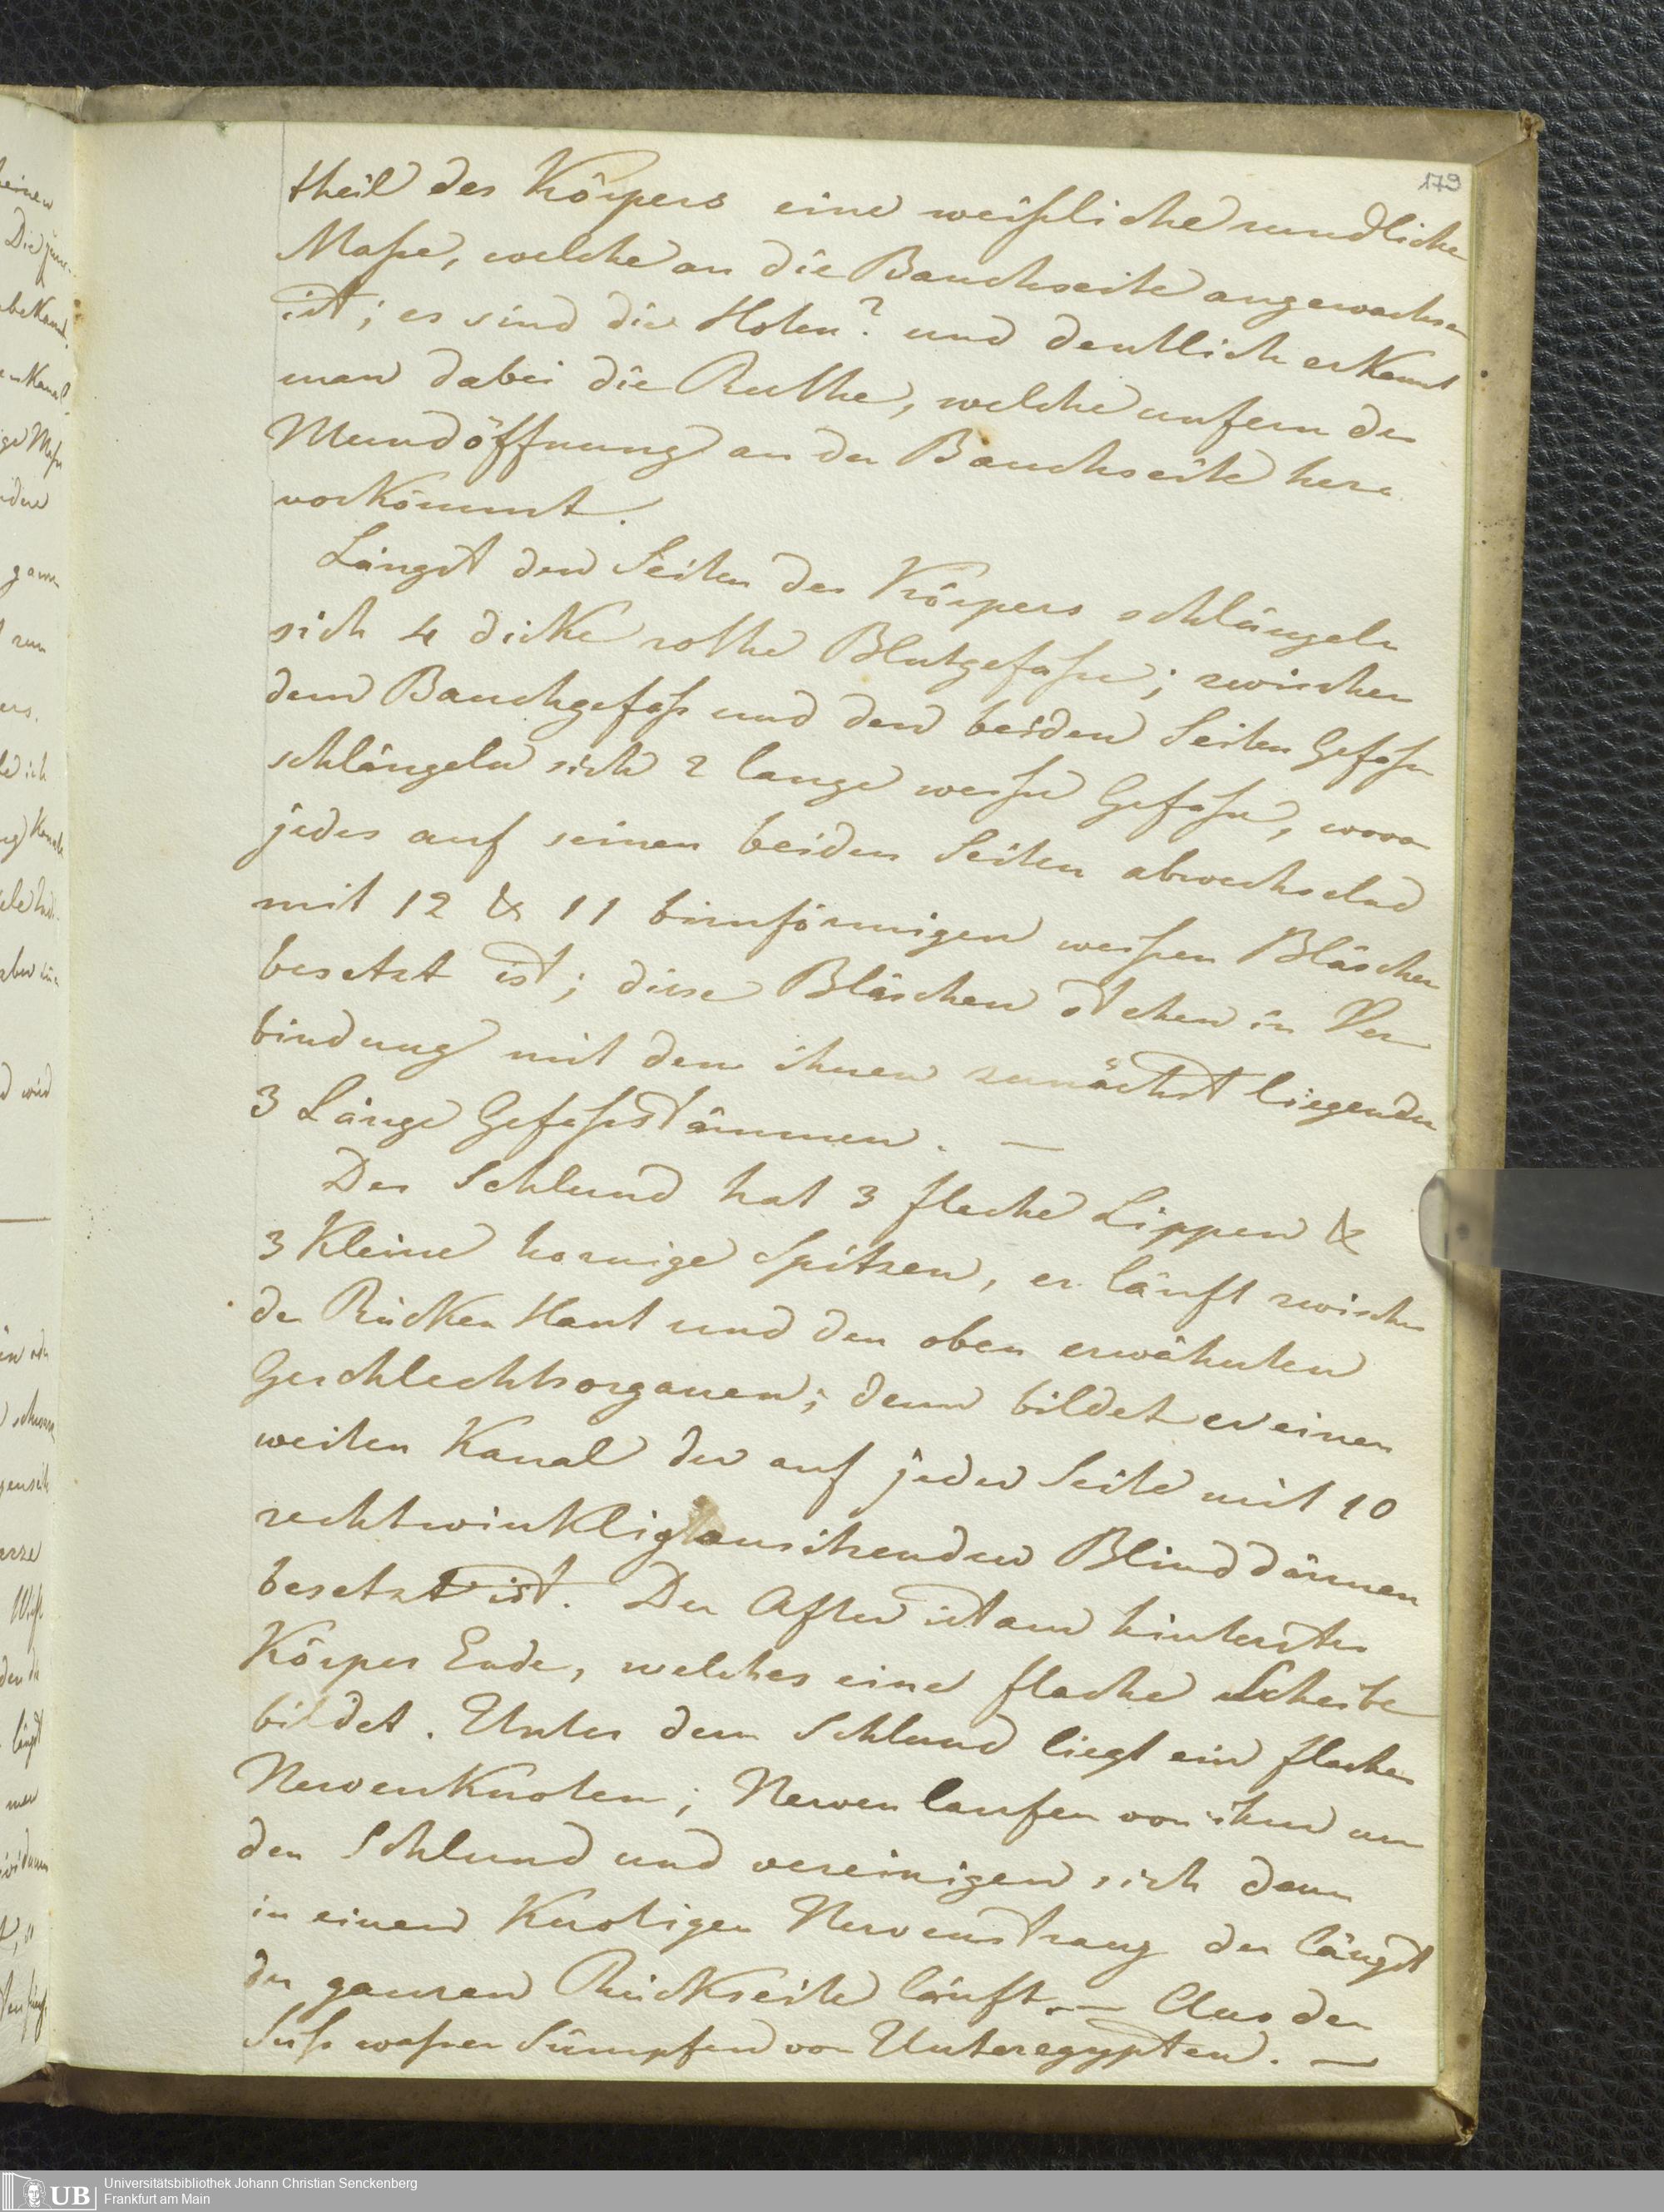 179
theil des Körpers eine weißliche rundliche
Maße, welche an die Bauchseite angewachsen
ist; es sind die Hoten? und deutlich erkennt
man dabei die Ruthe, welche unfern der
Mundöffnung an der Bauchseite her-
vorkömmt.
Längst den Seiten des Körpers schlängeln
sich 4 dicke rothe Blutgefaße; zwischen
dem Bauchgefaß und den beiden Seiten Gefaßen
schlängeln sich 2 lange weiße Gefaße, wovon
jedes auf seinen beiden Seiten abwechselnd
mit 12 & 11 birnförmigen weißen Bläschen
besetzt ist; diese Bläschen stehen in Ver-
bindung mit dem ihnen zunächst liegenden
3 Länge Gefaßstämmen. —
Der Schlund hat 3 flache Lippen &
3 Kleine hornige Spitzen, er läuft zwischen
der Rücken Haut und den oben erwähnten
Geschlechtsorganen; dann bildet er einen
weiten Kanal der auf jeder Seite mit 10
rechtwinklig ansitzenden Blinddärmen
besetzt ist. Der After ist am hintersten
Körper Ende, welches eine flache Scheibe
bildet. Unter dem Schlund liegt ein flacher
Nervenknoten; Nerven laufen von ihm um
den Schlund und vereinigen sich dann
in einen Knotigen Nervenstrang der längst
der ganzen Rückseite läuft. — Aus den
Süß waßer Sümpfen von Unteregypten. —
Universitätsbibliothek Johann Christian Senckenberg
Frankfurt am Main
UB